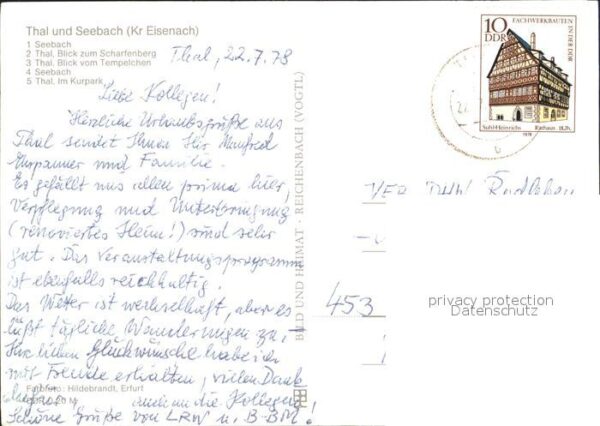 Thal und Seebach (Kr Eisenach)
1 Seebach
2 Thal, Blick zum Scharfenberg
3 Thal, Blick vom Tempelchen
4 Seebach
5 Thal, Im Kurpark
Thal, 22.7.78
Liebe Kollegen!
Herzliche Urlaubsgrüße aus
Thal sendet Ihnen Ihr Manfred
und Familie.
Es gefällt uns allen prima hier,
Verpflegung und Unterbringung
(renoviertes Heim!) sind sehr
gut. Das Veranstaltungsprogramm
ist ebenfalls reichhaltig.
Das Wetter ist wechselhaft, aber es
läßt tägliche Wanderungen zu,
Ihre lieben Glückwünsche habe ich
mit Freude erhalten, vielen Dank
auch an die Kollegen
Schöne Grüße von LRW u. B-BM!
Farbfoto: Hildebrandt, Erfurt
BILD UND HEIMAT · REICHENBACH (VOGTL)
10
DDR
FACHWERKBAUTEN
IN DER DDR
Suhl-Heinrichs Rathaus 16.Jh.
1978
VEB
453
privacy protection
Datenschutz